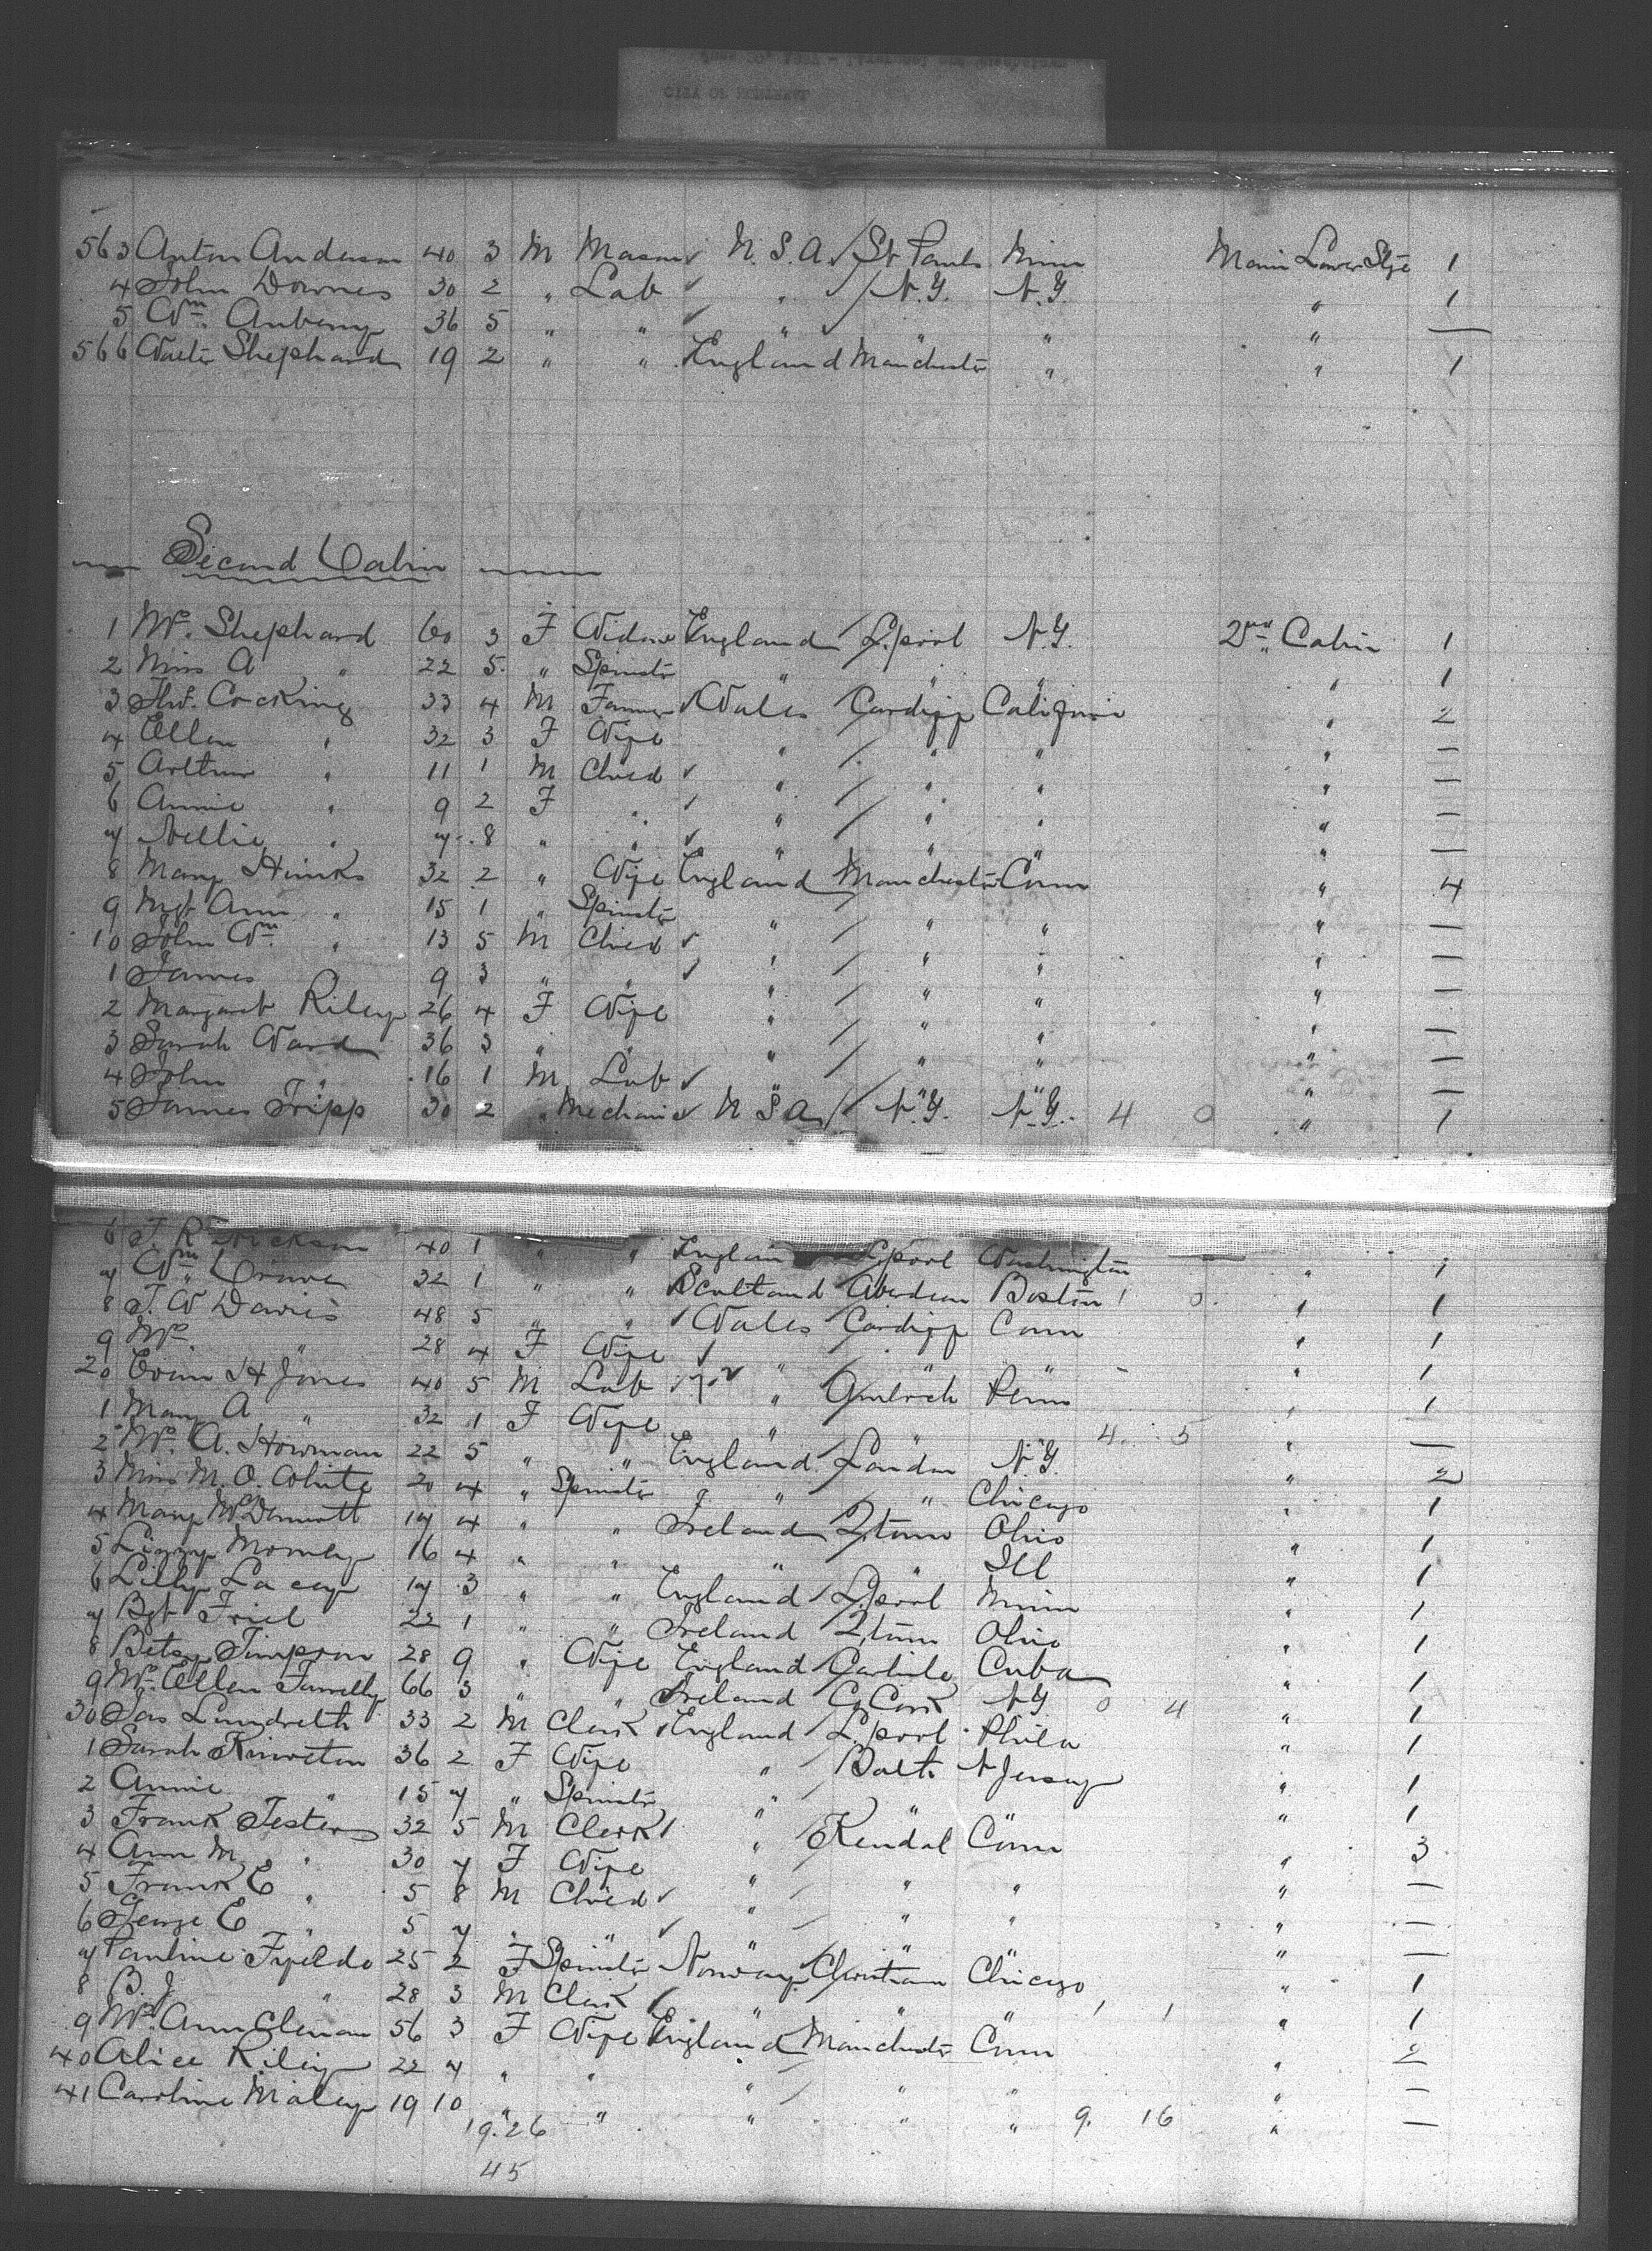 563 Anton Anderson 40 3 M Mason U.S.A. St Pauls Minn Main Lower Stge 1
4 John Downes 30 2 " Lab " N.Y. N.Y. " 1
5 Wm 36 5 " " " " " —
566 Walter Shephard 19 2 " " England Manchester " " 1
Second Cabin
1 Mrs. Shephard 60 3 F Widow England L.pool N.Y. 2nd Cabin 1
2 Miss A " 22 5 " Spinster " " " " 1
3 Thos. Cocking 33 4 M Farmer Wales Cardiff California " 2
4 Ellen " 32 3 F Wife " " " " —
5 Arthur " 11 1 M Child " " " " —
6 Annie " 9 2 F " " " " " —
7 Nellie " 7 8 " " " " " " —
8 Mary Hinks 32 2 " Wife England Manchester Conn " 4
9 Mgt Ann " 15 1 " Spinster " " " " —
10 John Wm " 13 5 M Child " " " " —
1 James 9 3 " " " " " " —
2 Margaret Riley 26 4 F Wife " " " " —
3 Sarah Ward 36 3 " " " " " " —
4 John " 16 1 M Lab " " " " —
5 James Tripp 30 2 " Mechanic U.S.A. N.Y. N.Y. 4 0 " 1
6 40 1 " " England L.pool Washington " 1
7 Wm 32 1 " " Scotland Aberdeen Boston 1 0 " 1
8 T. W Davies 48 5 " " Wales Cardiff Conn " 1
9 Mrs. " 28 4 F Wife " " " " 1
20 Evan H Jones 40 5 M Lab " Amlwch Penn " 1
1 Mary A " 32 1 F Wife " " " 4. 5 " —
2 Mrs. A. Howman 22 5 " " England London N.Y. " 2
3 Miss M. O. White 20 4 " Spinster " " Chicago " 1
4 Mary McDermott 17 4 " " Ireland Q.town Ohio " 1
5 16 4 " " " " Ill " 1
6 Lilly Lacey 17 3 " " England L.pool Minn " 1
7 Bgt Friel 22 1 " " Ireland Q.town Ohio " 1
8 Betsy Simpson 28 9 " Wife England Carlisle Cuba " 1
9 Mrs. Ellen Farrelly 66 3 " " Ireland Co Cork NY 0 4 " 1
30 Jas Lundreth 33 2 M Clerk England L.pool Phila " 1
1 Sarah 36 2 F Wife " Bolt. N Jersey " 1
2 Annie " 15 7 " Spinster " " " " 1
3 Frank Testers 32 5 M Clerk " Kendal Conn " 3
4 Ann M " 30 7 F Wife " " " " —
5 Frank E " 5 8 M Child " " " " —
6 George E " 5 7 " " " " " " —
7 Pauline Fjelde 25 2 F Spinster Norway Christian Chicago " 1
8 B. J " 28 3 M Clerk " " " 1 1 " 1
9 Mrs. Ann 56 3 F Wife England Manchester Conn " 2
40 Alice Riley 22 4 " " " " " " —
41 Caroline Maley 19 10 " " " " " 9. 16 " —
19.26
45